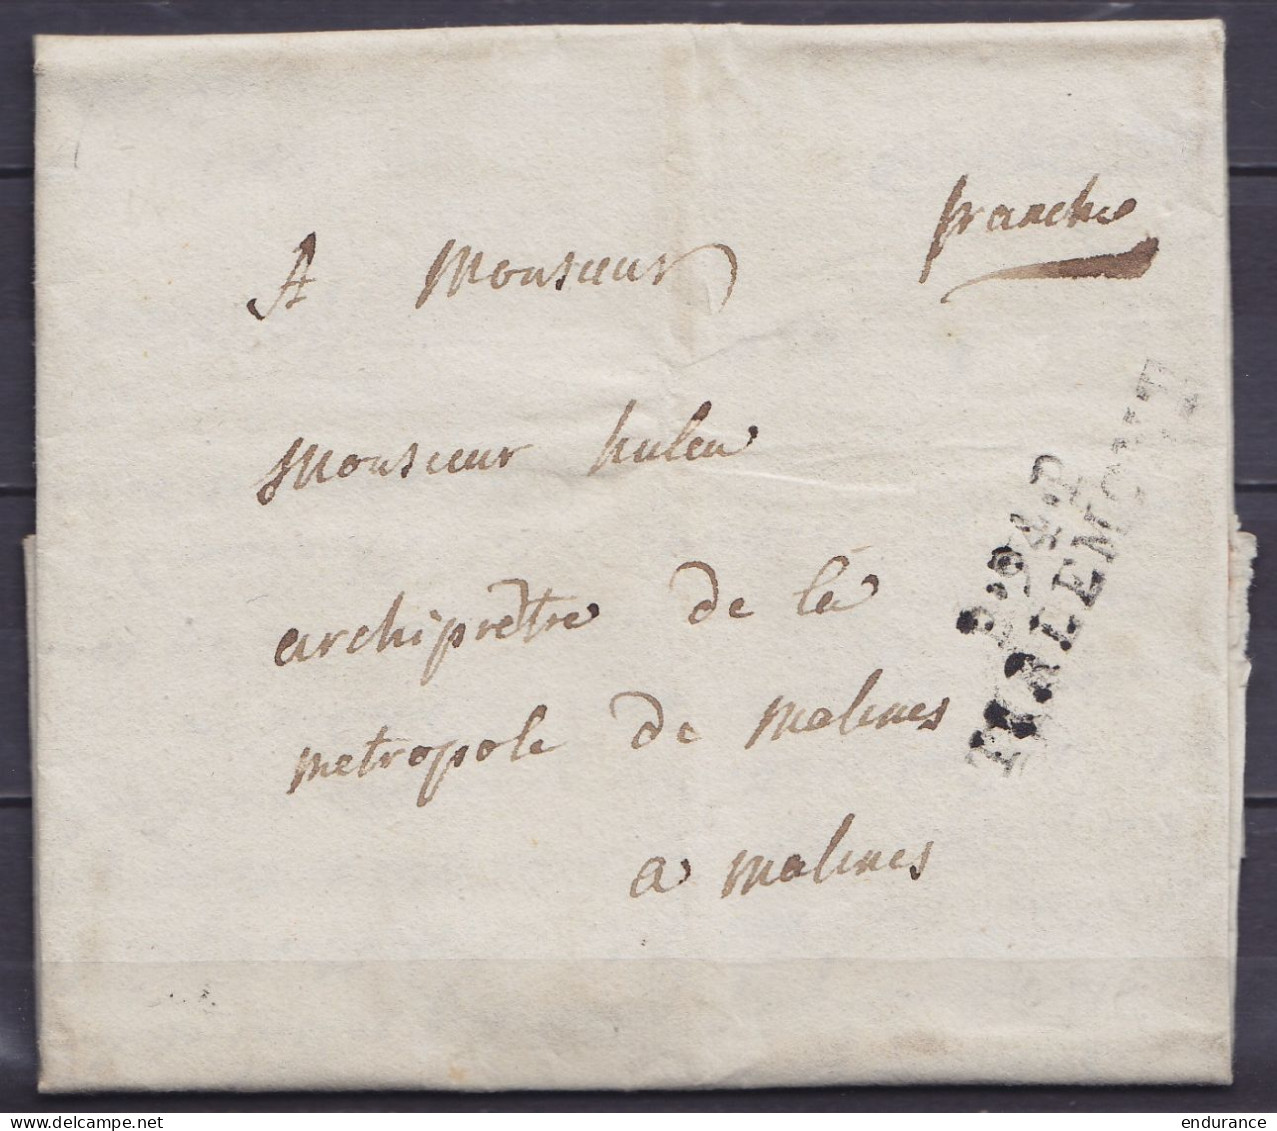 franche
A Monsieur
monsieur hulen
archiprêtre de la
metropole de malines
a malines
P.94.P
THIRLEMONT
endurance